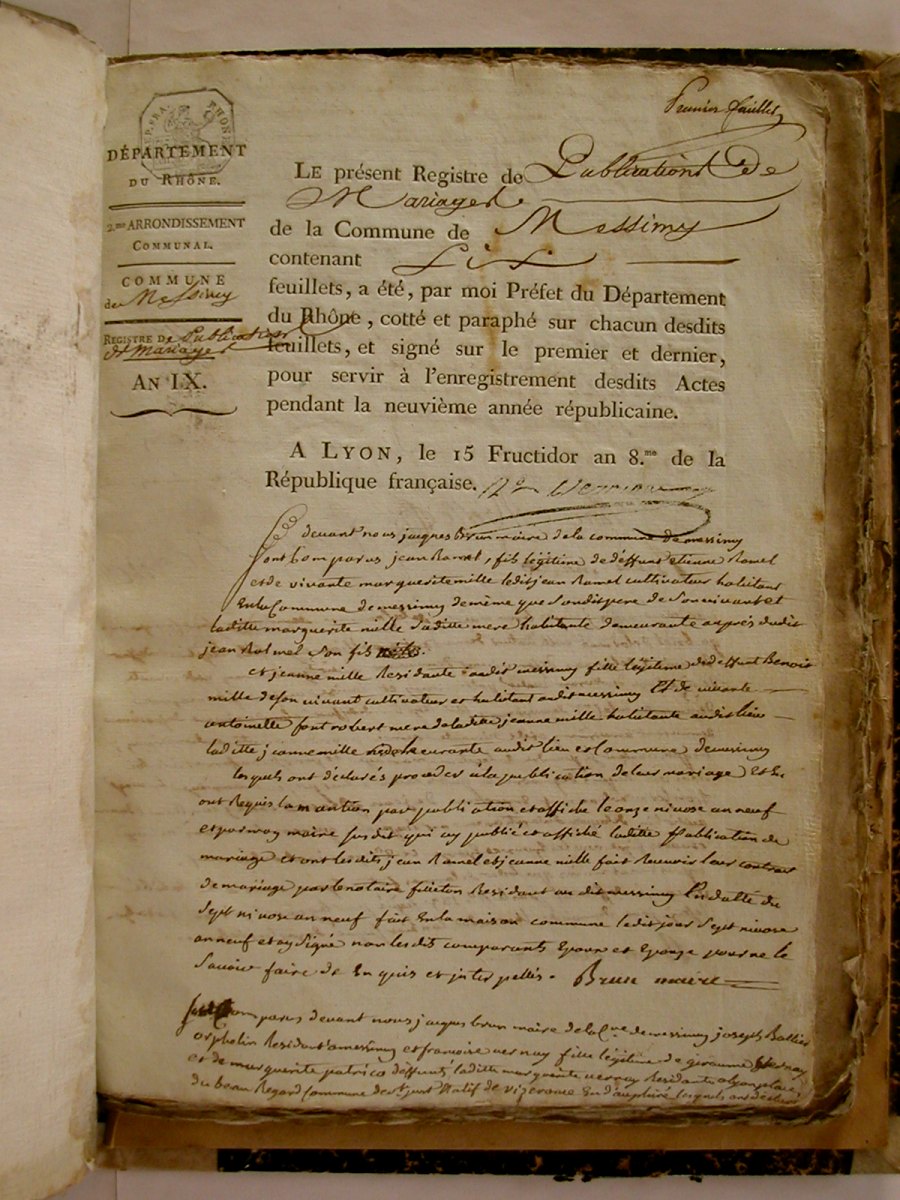 Premier feuillet
DÉP. FRA. RHONE
DÉPARTEMENT
DU RHÔNE.
2.me ARRONDISSEMENT
COMMUNAL.
COMMUNE
de Messimy
REGISTRE De Publication
de Mariages
AN IX.
LE présent Registre de Publications De
Mariages
de la Commune de Messimy
contenant Six
feuillets, a été, par moi Préfet du Département
du Rhône, cotté et paraphé sur chacun desdits
feuillets, et signé sur le premier et dernier,
pour servir à l'enregistrement desdits Actes
pendant la neuvième année républicaine.
A LYON, le 15 Fructidor an 8.me de la
République française.
devant nous jacques brun maire de la commune de messimy
sont Comparus jean Ramel, fils légitime de deffunt etienne Ramel
et de vivante marguerite mille ledit jean Ramel cultivateur habitant
En la Commune de messimy de même que Sondit pere de Son vivant et
laditte marguerite mille Saditte mere habitante demeurante auprés dudit
jean Ramel Son fils
et jeanne mille Residante audit messimy fille légitime de deffunt Benoit
mille de son vivant cultivateur et habitant audit messimy Et de vivante
antoinette font robert mere de laditte jeanne mille habitante audit lieu
laditte jeanne mille demeurante audit lieu et Commune de messimy
lesquels ont déclarés proceder à la publication de leur mariage Et
ont Requis la mantion par publication et affiche le onze nivose an neuf
et par moy maire susdit qui ay publié et affiché laditte Publication de
mariage et ont lesdits jean Ramel et jeanne mille fait Recevoir leur contrat
de mariage par le notaire Residant au dit messimy En datte du
Sept nivose an neuf fait En la maison commune ledit jour Sept nivose
an neuf et ay Signé non lesdits comparants Epoux et Epouze pour ne le
Savoir faire de Enquis et interpellés. Brun maire
Comparus devant nous jacques brun maire de la Cne de messimy joseph
orphelin Residant a messimy et francoise vernay fille légitime de vernay
et de marguerite patrico deffunts laditte marguerite vernay Residante a lyon place
du beau Regard Commune de St. just Natif de En dauphiné lesquels ont déclaré